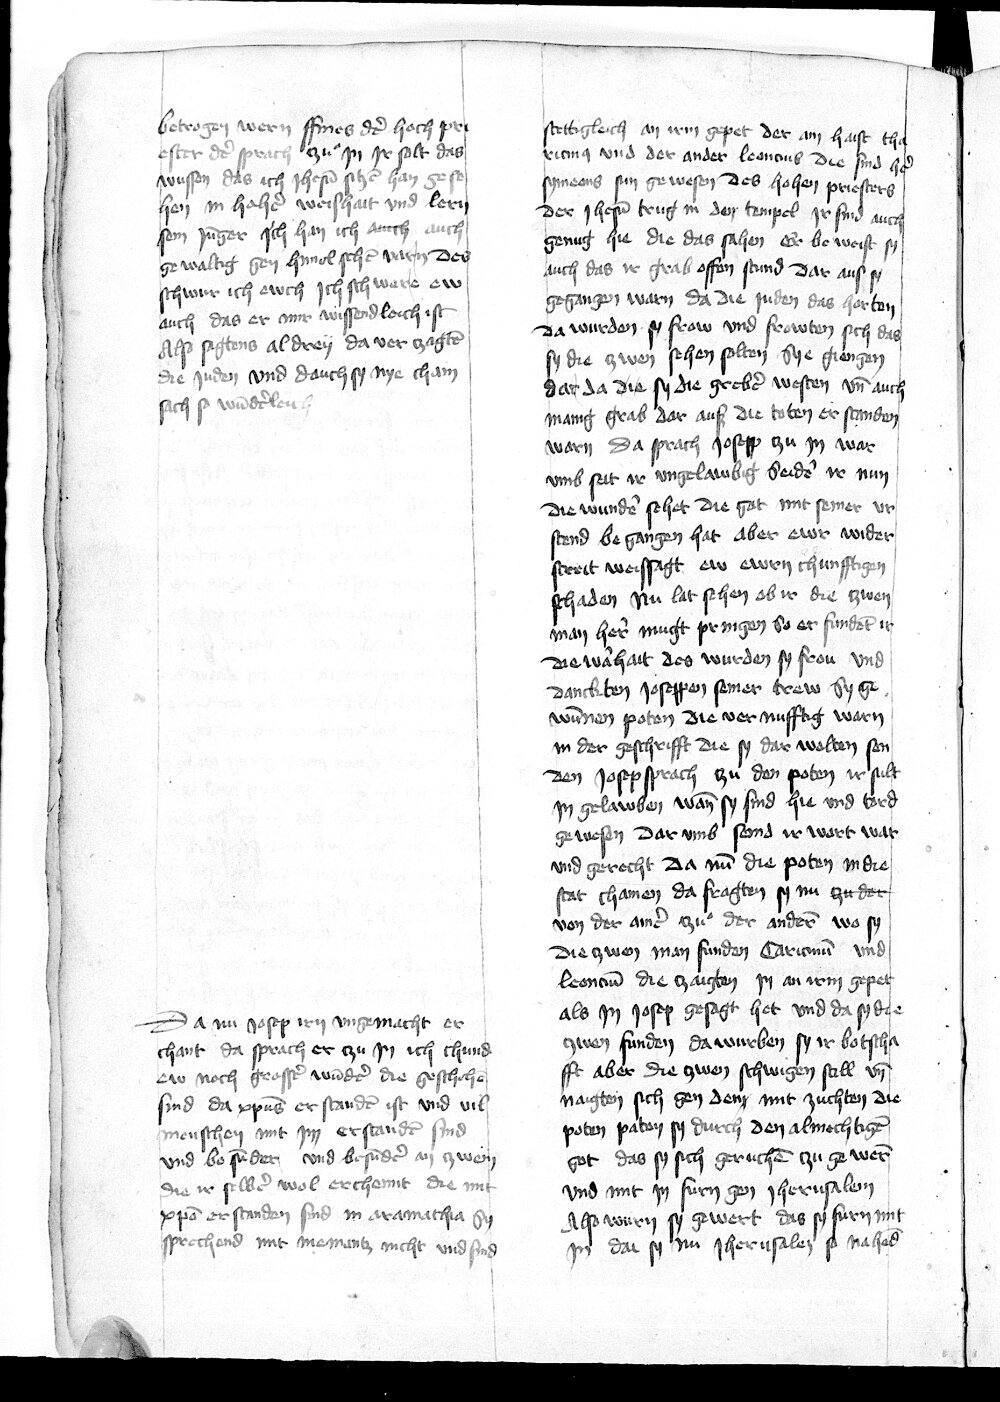 betrogen wern ffines der̄ hoch pri
ester der̄ sprach czu in Ir solt das
wissen das ich Jhesū sicher̄ han gese
hen in hoher̄ weishait und lern
sein Jūnger Ich han ich auch auch
gewaltig gen himel sehē varn Des
schwur ich ewch Ich schwere ew
auch das er mir wissendleich ist
Also sagtens al dreÿ da ver czagtē
die Juden und dauch sy nye cham
sach so wūder̄leich
Da nu Josep irn ungemacht er
chant da sprach er czu in ich chund
ew noch grosser̄ wūder̄ die geschehē
sind da xpūs erstandē ist und vil
menschen mit im erstandē sind
und besūder und besūder̄ an zwein
die ir selber̄ wol erchennt die mit
xpō erstanden sind in aramathia Sy
sprechend mit niemantz nicht und sind
stettigleich an irm gepet der ain haist tha
ricius und der ander leoncius Die sind her̄
symeons sun gewesen Des hohen priesters
Der Jhesū trug in den tempel Ir sind auch
genug hie die das sahen Er beweist sy
auch das ir grab offen stund Dar auss sy
gegangen warn da die Juden das horten
Da wurden sy frow und frowten sich das
sy die czwen sehen solten Sye giengen
dar da die sy die greber̄ westen vn̄ auch
manig grab dar auss die toten erstanden
warn Da sprach Josepp czu in war
umb seit ir ungelawbig Seider̄ ir nun
die wunder̄ sehet die got mit seiner ur
stend begangen hat aber ewr wider
streit weissagt ew ewrn chunfftigen
schaden Nu lat sehen ob ir die czwen
man her̄ mugt pringen So er findet ir
die warhait des wurden sy frou und
danckten Joseppen seiner trew Sy ge
wūnen poten die vernufftig warn
in der geschrifft die sy dar wolten sen
den Josep sprach czu den poten ir sult
in gelawben wan̄ sy sind hie und tord
gewesen Dar umb seind ir wort war
und gerecht Da nū die poten in die
stat chamen da fragten sy nu czu der
von der ainer̄ czu der andern̄ wo sy
die czwen man funden Caricium̄ und
leonciū die czaigten in an irm gepet
als in Josep gesagt het und da sy die
czwen funden da wurben sy ir botscha
fft aber die czwen schwigen still vn̄
naigten sich gen dem mit zuchten die
poten paten sy durch den almechtigē
got das sy sich geruchē czu gewer̄
und mit in furn gen Jherusalem
Also wurn sy gewert das sy furn mit
in dar sy nu Jherusalem so nahed̄